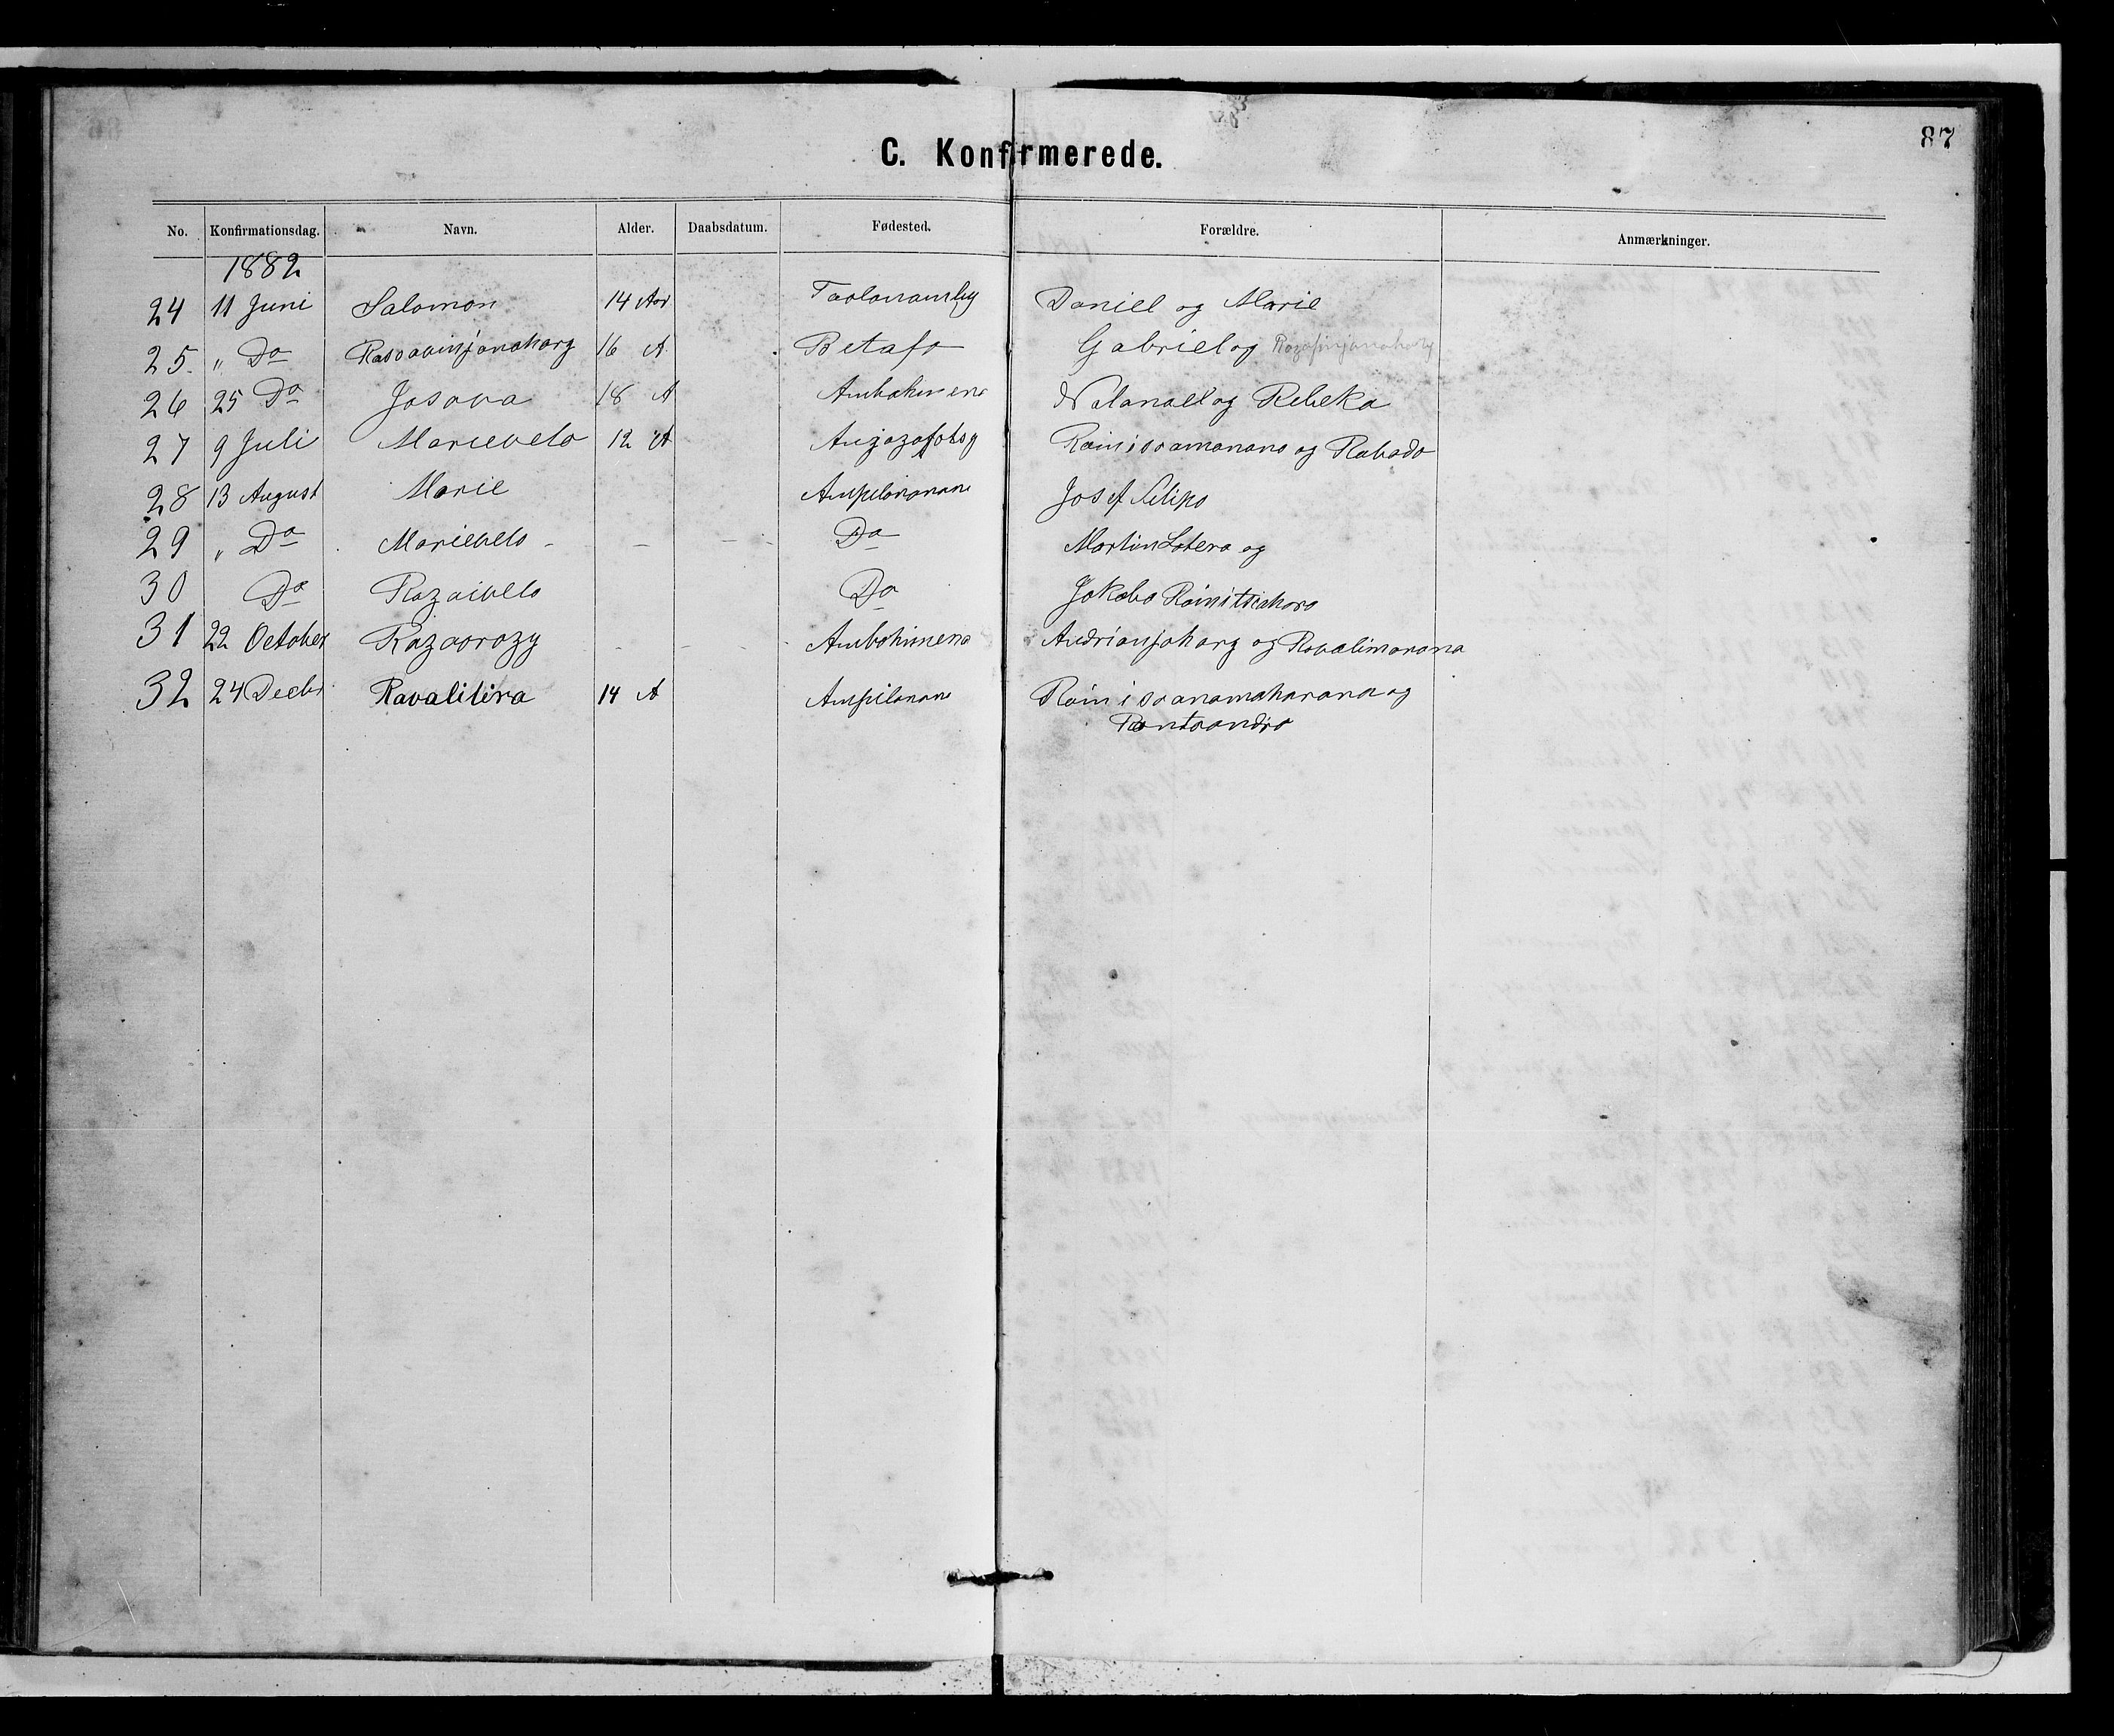 87
C. Konfirmerede.
No. Konfirmationsdag. Navn. Alder. Daabsdatum. Fødested. Forældre. Anmærkninger.
1882
24 11 Juni Salomon 14 Aar Daniel og Marie
25. " Do 16 A. Betafo Gabriel og Razafinjanahary
26 25 Do Josova 18 A Ambohimena Natanael og Rebeka
27 9 Juli Marievelo 12 A Anjazafotsy og Rabodo
28 13 August Marie Ampilanana Josef Filipo
29 " Do Marievelo - - - - Do Martin Lotera og
30 Do Razaivelo Do Jakobo Rainitsiahoro
31 22 October Razaorozy - - - Ambohimena Andrianjohary og Ravalimarama
32 24 Decbr. Ravalitera 14 A Ampilanana Rainisoanamaharana og
Rantsandro